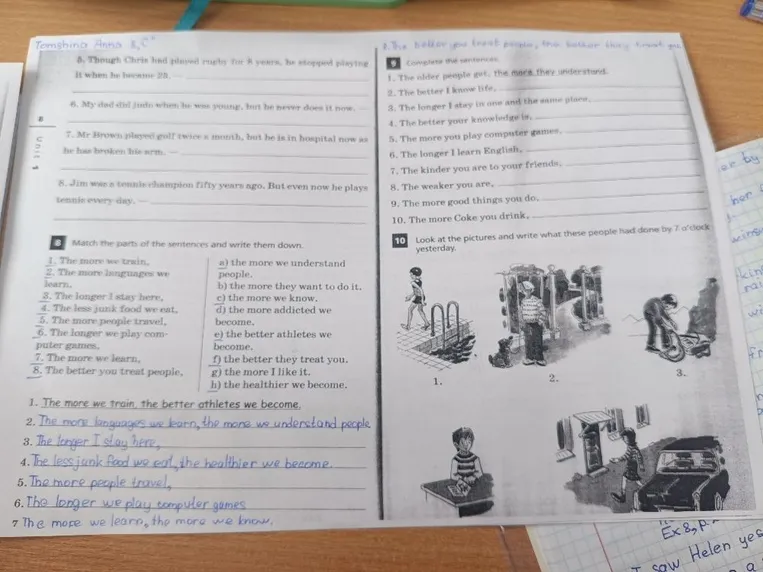 Tomshina Anna 8 "C"
5. Though Chris had played rugby for 8 years, he stopped playing
it when he became 20. —
6. My dad did judo when he was young, but he never does it now. —
7. Mr Brown played golf twice a month, but he is in hospital now as
he has broken his arm. —
8. Jim was a tennis champion fifty years ago. But even now he plays
tennis every day. —
8
Unit 1
8 Match the parts of the sentences and write them down.
1. The more we train,
2. The more languages we
learn,
3. The longer I stay here,
4. The less junk food we eat,
5. The more people travel,
6. The longer we play com-
puter games,
7. The more we learn,
8. The better you treat people,
a) the more we understand
people.
b) the more they want to do it.
c) the more we know.
d) the more addicted we
become.
e) the better athletes we
become.
f) the better they treat you.
g) the more I like it.
h) the healthier we become.
1. The more we train, the better athletes we become.
2. The more languages we learn, the more we understand people
3. The longer I stay here,
4. The less junk food we eat, the healthier we become.
5. The more people travel,
6. The longer we play computer games
7 The more we learn, the more we know.
8. The better you treat people, the better they treat you
9 Complete the sentences.
1. The older people get, the more they understand.
2. The better I know life,
3. The longer I stay in one and the same place,
4. The better your knowledge is,
5. The more you play computer games,
6. The longer I learn English,
7. The kinder you are to your friends,
8. The weaker you are,
9. The more good things you do,
10. The more Coke you drink,
10 Look at the pictures and write what these people had done by 7 o'clock
yesterday.
1.
2.
3.
Ex 8, p.
I saw Helen yes